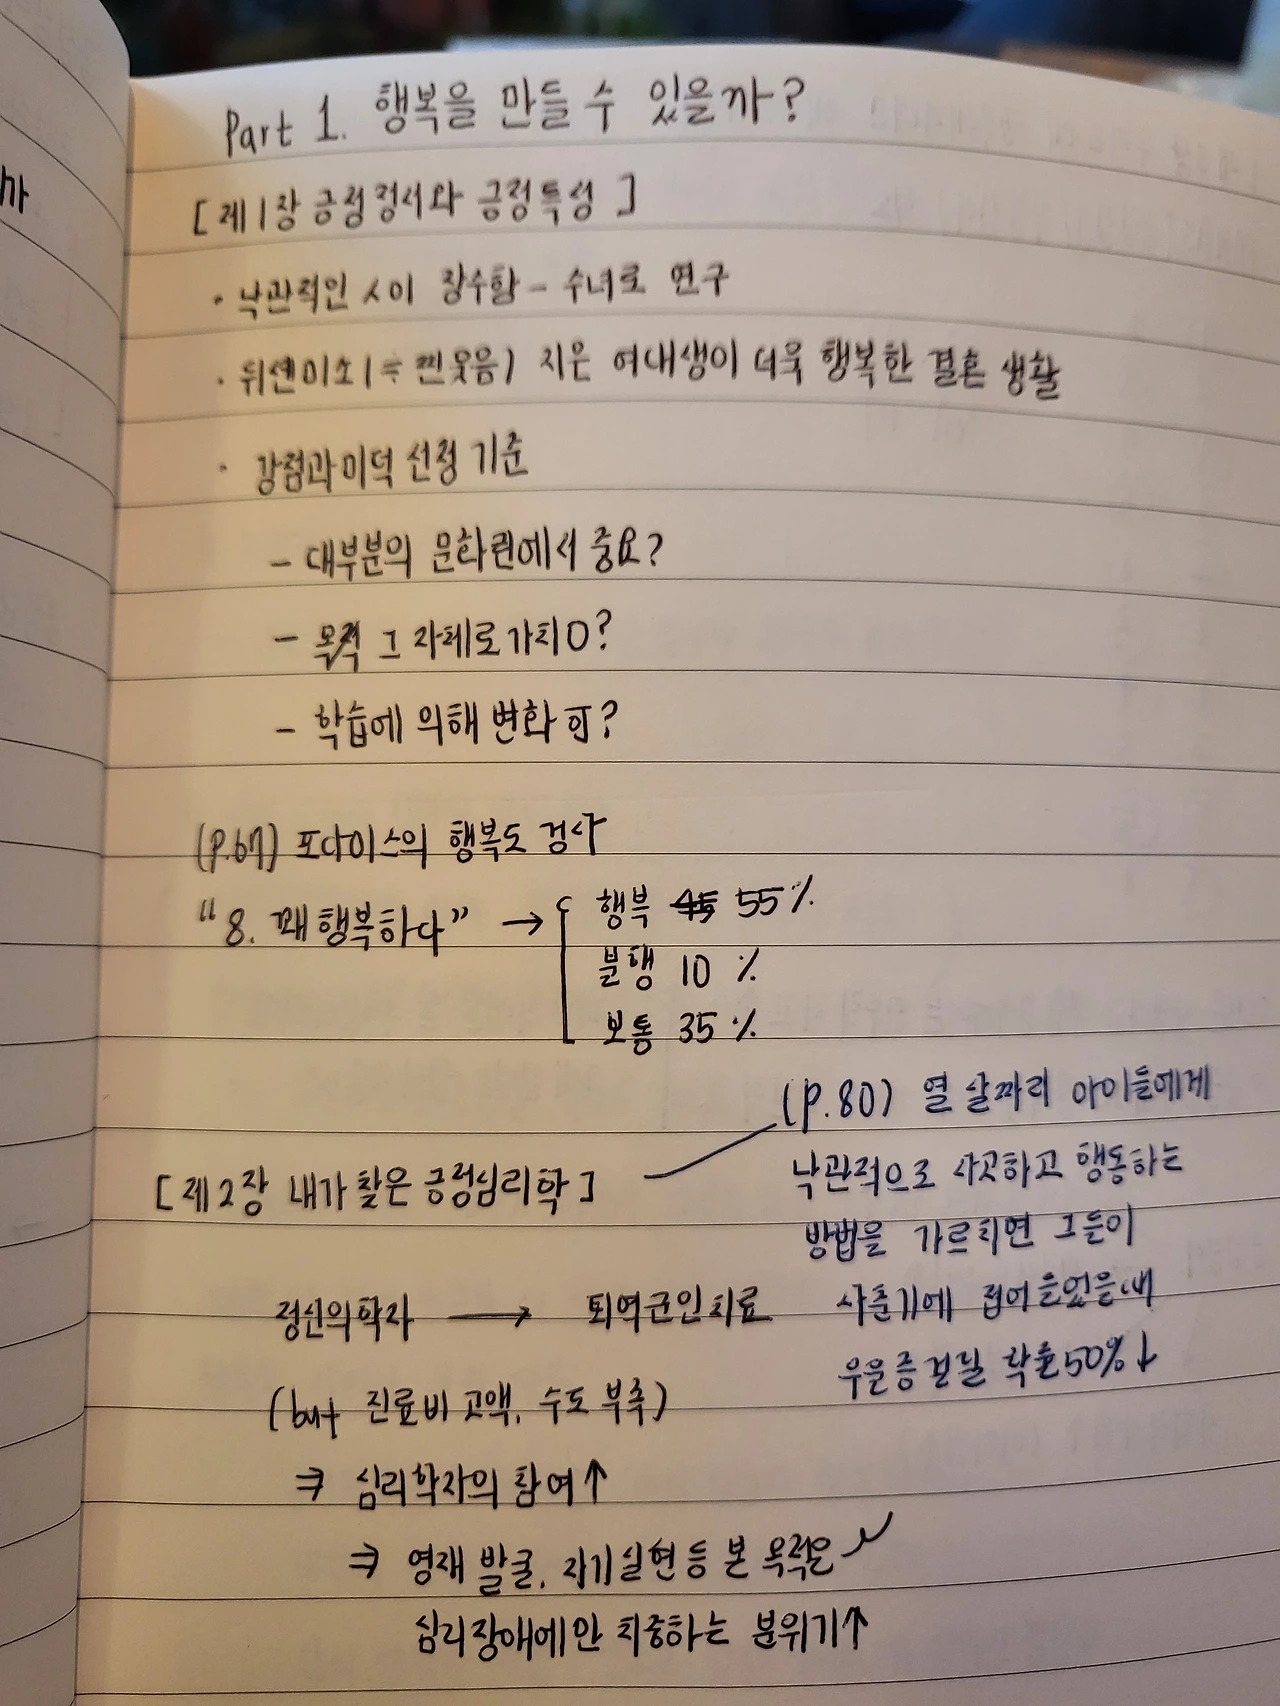 까
Part 1. 행복을 만들 수 있을까?
[제1장 긍정정서와 긍정특성]
· 낙관적인 人이 장수함 - 수녀로 연구
· 뒤센미소(≒찐웃음) 지은 여대생이 더욱 행복한 결혼 생활
· 강점과 미덕 선정 기준
- 대부분의 문화권에서 중요?
- 목적 그 자체로 가치O?
- 학습에 의해 변화 可?
(P.67) 포다이스의 행복도 검사
"8. 꽤 행복하다" →
행복 45 55%
불행 10%
보통 35%
[제2장 내가 찾은 긍정심리학]
(P.80) 열 살짜리 아이들에게
낙관적으로 사고하고 행동하는
방법을 가르치면 그들이
사춘기에 접어들었을때
우울증 걸릴 확률 50%↓
정신의학자 → 퇴역군인치료
(but 진료비 고액, 수도 부족)
⇒ 심리학자의 참여↑
⇒ 영재 발굴, 자기실현 등 본 목적은 ↙
심리장애에만 치중하는 분위기↑